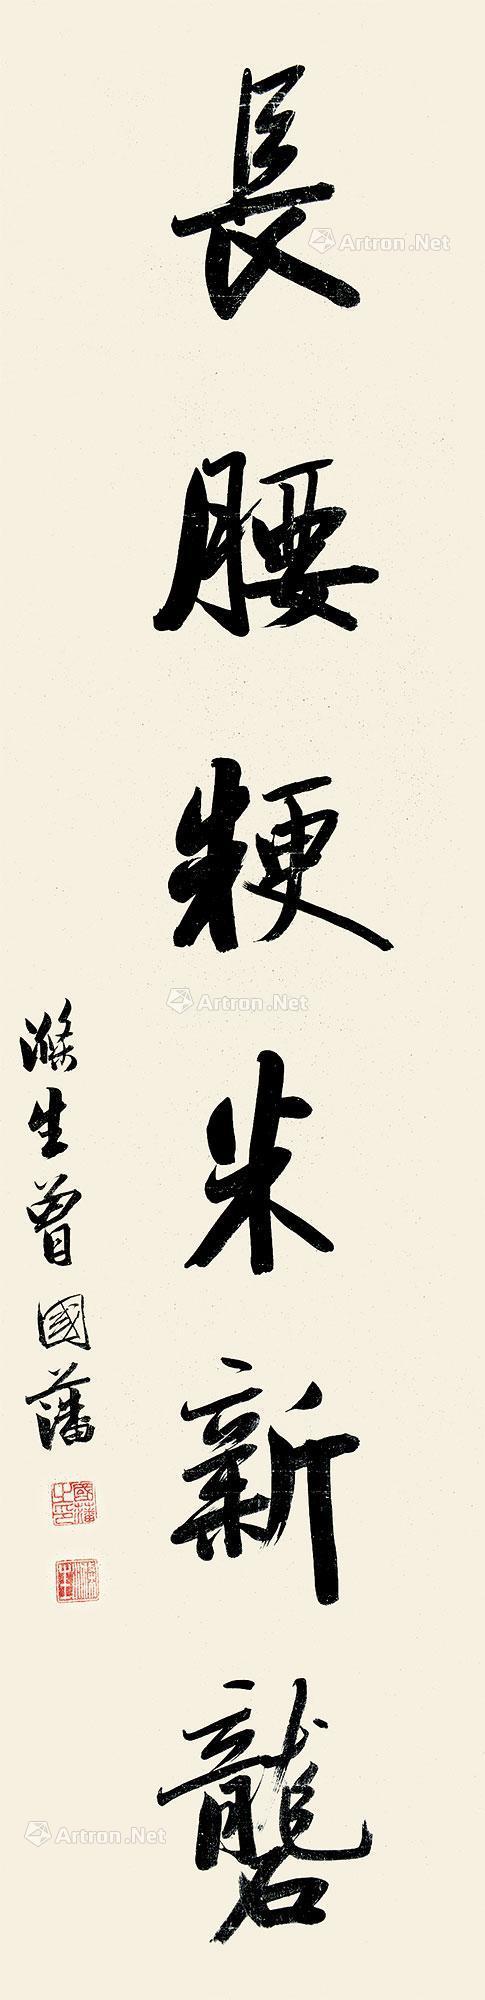 長腰粳米新礱
滌生曾國藩
國藩之印
滌生
Artron.Net
Artron.Net
Artron.Net